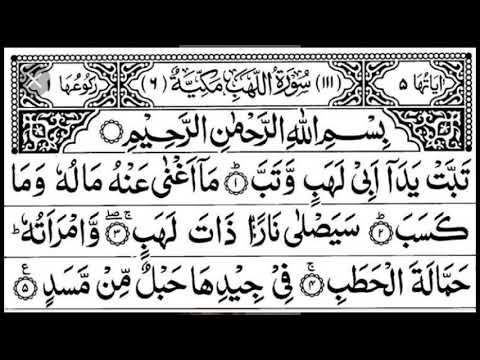 اٰیَاتُهَا ٥ (١١١) سُوْرَةُ اللَّهَبِ مَكِّيَّةٌ (٦) رُكُوْعُهَا ١
بِسْمِ اللّٰهِ الرَّحْمٰنِ الرَّحِيْمِ
تَبَّتْ يَدَآ اَبِيْ لَهَبٍ وَّتَبَّ ؕ۝١ مَاۤ اَغْنٰى عَنْهُ مَالُهٗ وَمَا
كَسَبَ ؕ۝٢ سَيَصْلٰى نَارًا ذَاتَ لَهَبٍ ۚۖ۝٣ وَّامْرَاَتُهٗ ؕ
حَمَّالَةَ الْحَطَبِ ۚ۝٤ فِيْ جِيْدِهَا حَبْلٌ مِّنْ مَّسَدٍ ۝٥ ع